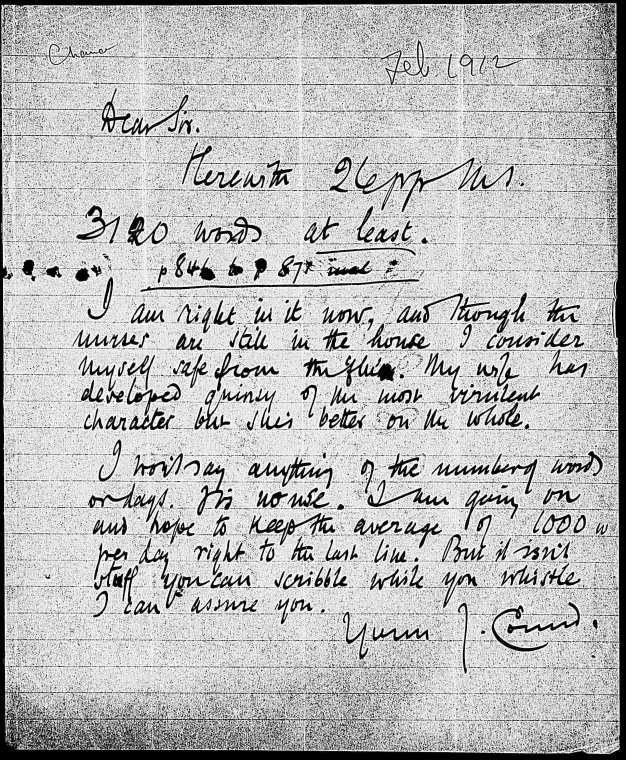 Chance
Feb. 1912
Dear Sir.
Herewith 26 pp MS.
3120 words at least.
p 846 to p 871
I am right in it now, and though the
nurses are still in the house I consider
myself safe from the flue. My wife has
developed quinsy of the most virulent
character but she's better on the whole.
I won't say anything of the number of words
or days. It's no use. I am going on
and hope to keep the average of 1000 w
per day right to the last line. But it isn't
stuff you can scribble while you whistle
I can assure you.
Yours J. Conrad.